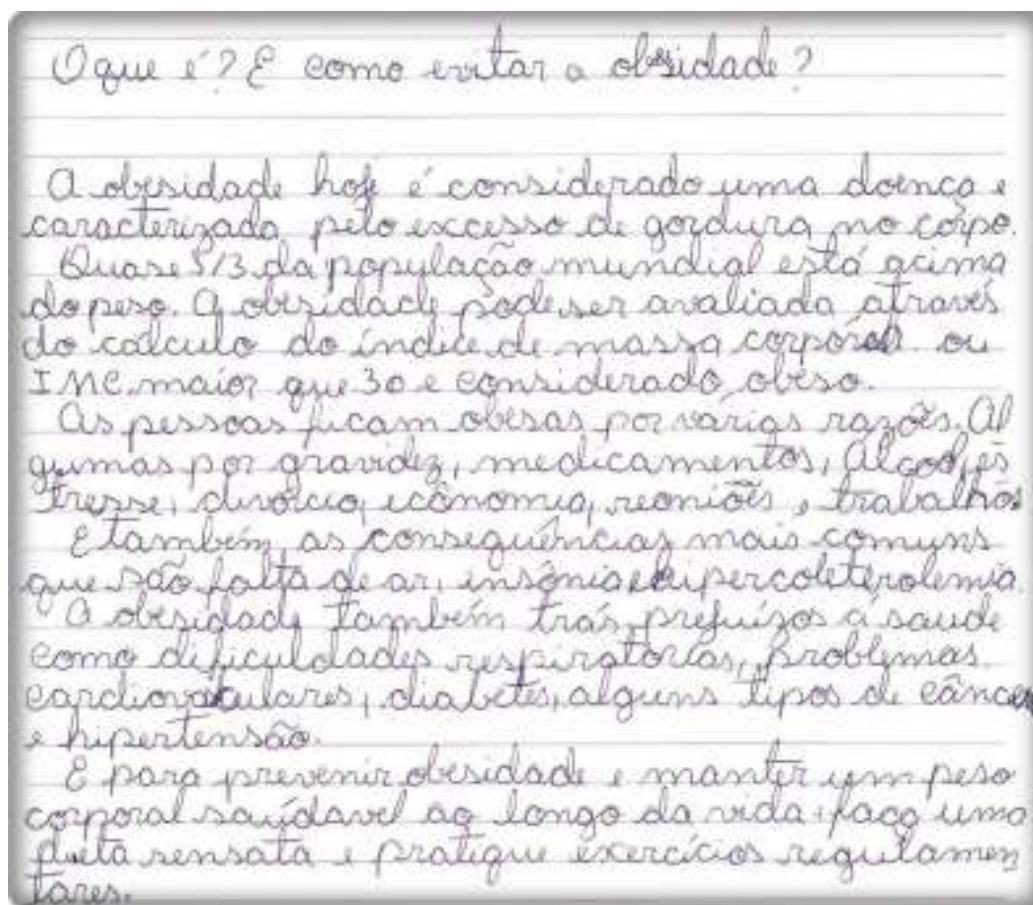 O que é? E como evitar a obesidade?
A obesidade hoje é considerado uma doença e
caracterizada pelo excesso de gordura no corpo.
Quase 1/3 da população mundial está acima
do peso. A obesidade pode ser avaliada através
do calculo do índice de massa corporal ou
IMC maior que 30 e considerado obeso.
As pessoas ficam obesas por várias razões. Al
gumas por gravidez, medicamentos, álcool, es
tresse, divórcio, ecônomia, reoniões, trabalhos
E também as consequências mais comuns
que são falta de ar, insônia e hipercoleterolemia.
A obesidade também trás prejuízos á saude
como dificuldades respiratórias, problemas
cardiovaculares, diabetes, alguns tipos de câncer
e hipertensão.
E para prevenir obesidade e manter um peso
corporal saúdavel ao longo da vida, faça uma
dieta sensata e pratique exercícios regulamen
tares.